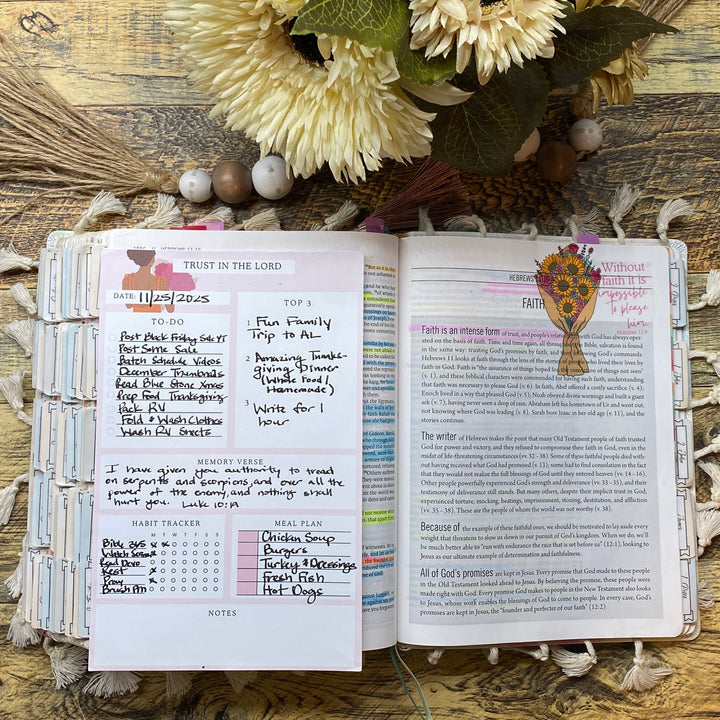 TRUST IN THE LORD
DATE: 11/25/2025
TO-DO
Post Black Friday Sale YT
Post Some Sale
Batch Schedule Videos
December Thumbnails
Read Blue Stone Xmas
Prep Food Thanksgiving
Pack RV
Fold & Wash Clothes
Wash RV Sheets
TOP 3
1 Fun Family
Trip to AL
2 Amazing Thanks-
giving Dinner
(Whole Food/
Homemade)
3 Write for 1
hour
MEMORY VERSE
I have given you authority to tread
on serpents and scorpions, and over all the
power of the enemy, and nothing shall
hurt you. Luke 10:19
HABIT TRACKER
M T W T F S S
Bible 365
Watch Sermon
Read Devo
Rest
Pray
Brush PM
MEAL PLAN
Chicken Soup
Burgers
Turkey & Dressings
Fresh Fish
Hot Dogs
NOTES
HEBREWS
FAITH
Without
faith it is
impossible
to please
him.
Hebrews 11:6
Faith is an intense form of trust, and people's relationship with God has always oper-
ated on the basis of faith. Time and time again, all through the Bible, salvation is found
in the same way: trusting God's promises and then following God's commands.
Hebrews 11 looks at faith through the lens of the stories of people who lived their lives by
faith in God. Faith is "the assurance of things hoped for, the conviction of things not seen"
(v. 1), and these biblical characters were commended for having such faith, understanding
that faith was necessary to please God (v. 6). In faith, Abel offered a costly sacrifice (v. 4),
Enoch lived in a way that pleased God (v. 5), Noah obeyed divine warnings and built a giant
ark (v. 7), having never seen a drop of rain; Abraham left his hometown of Ur and went out,
not knowing where God was leading (v. 8), Sarah bore Isaac in her old age (v. 11), and the
stories continue.
The writer of Hebrews makes the point that many Old Testament people of faith trusted
God for power and victory, and they refused to compromise their faith in God, even in the
midst of life-threatening circumstances (vv. 32–38). Some of these faithful people died with-
out having received what God had promised (v. 13), some had to find consolation in the fact
that they would not realize the full blessings of God until they entered heaven (vv. 14–16).
Other people powerfully experienced God's strength and deliverance (vv. 33–35), and their
testimony of deliverance still stands. But many others, despite their implicit trust in God,
experienced torture, mocking, beatings, imprisonment, stoning, destitution, and affliction
(vv. 35–38). These are the people of whom the world was not worthy (v. 38).
Because of the example of these faithful ones, we should be motivated to lay aside every
weight that threatens to slow us down in our pursuit of God's kingdom. When we do, we'll
be much better able to "run with endurance the race that is set before us" (12:1), looking to
Jesus as our ultimate example of determination and faithfulness.
All of God's promises are kept in Jesus. Every promise that God made to these people
in the Old Testament looked ahead to Jesus. By believing the promise, these people were
made right with God. Every promise God makes to people in the New Testament also looks
to Jesus, whose work enables the blessings of God to come to people. In every case, God's
promises are kept in Jesus, the "founder and perfecter of our faith" (12:2).